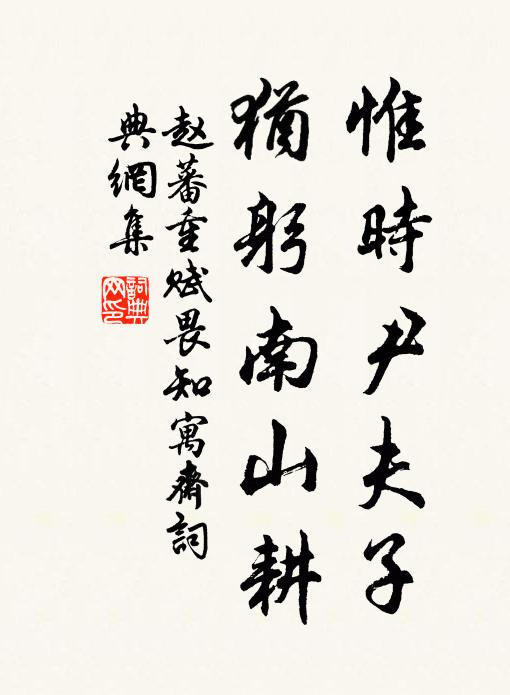 惟時尹夫子
猶躬南山耕
赵蕃重赋畏知寓齋詞
典網集
詞典
网印